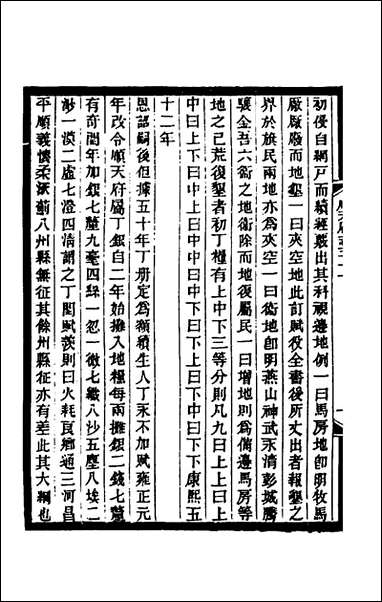 初侵自網戸而續經裁出其科視邊地例一曰馬房地卽明牧馬
厰厰廢而地墾一曰夾空地此訂賦役全書後所丈出者報墾之
界於旗民兩地亦爲夾空一曰衞地卽明燕山神武永清彭城騰
驤金吾六衞之地衞除而地復屬民一曰增地則爲備邊馬房等
地之已荒復墾者初丁糧有上中下三等分則凡九曰上上曰上
中曰上下曰中上曰中中曰中下曰下上曰下中曰下下康熙五
十二年
恩詔嗣後但據五十年丁册定爲額續生人丁永不加賦雍正元
年改令順天府屬丁銀自二年始攤入地糧每兩攤銀二錢七釐
有奇閏年加銀七釐九毫四絲一忽一微七纖八沙五塵八埃二
渺一漠二虛七澄四清謂之丁閏賦羡則曰火耗良鄉通三河昌
平順義懷柔涿薊八州縣無征其餘州縣征亦有差此其大綱也